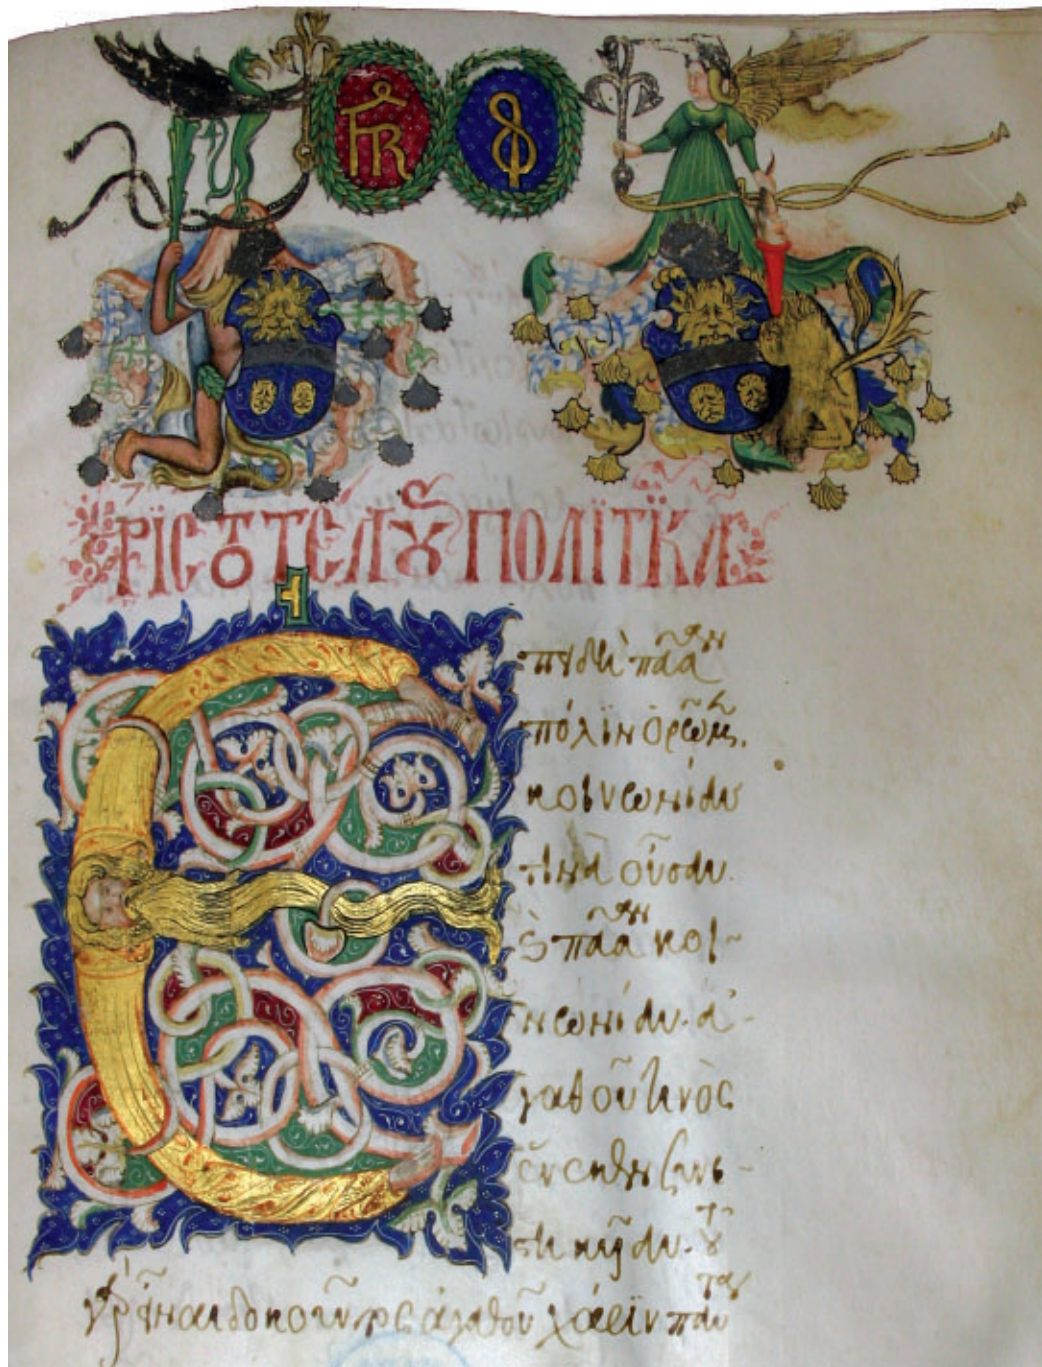 ἈΡΙϹΤΟΤΈΛΟΥϹ ΠΟΛΙΤΙΚΆ
Ἐπειδὴ πᾶσαν
πόλιν ὁρῶμεν
κοινωνίαν
τινὰ οὖσαν
καὶ πᾶσαν κοι-
νωνίαν ἀ-
γαθοῦ τινὸς
ἕνεκεν συνε-
στηκυῖαν. τοῦ
γὰρ εἶναι δοκοῦντος ἀγαθοῦ χάριν πάντα